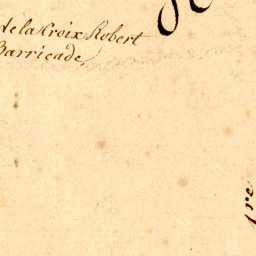 de la Croix Robert
Barricade,
re